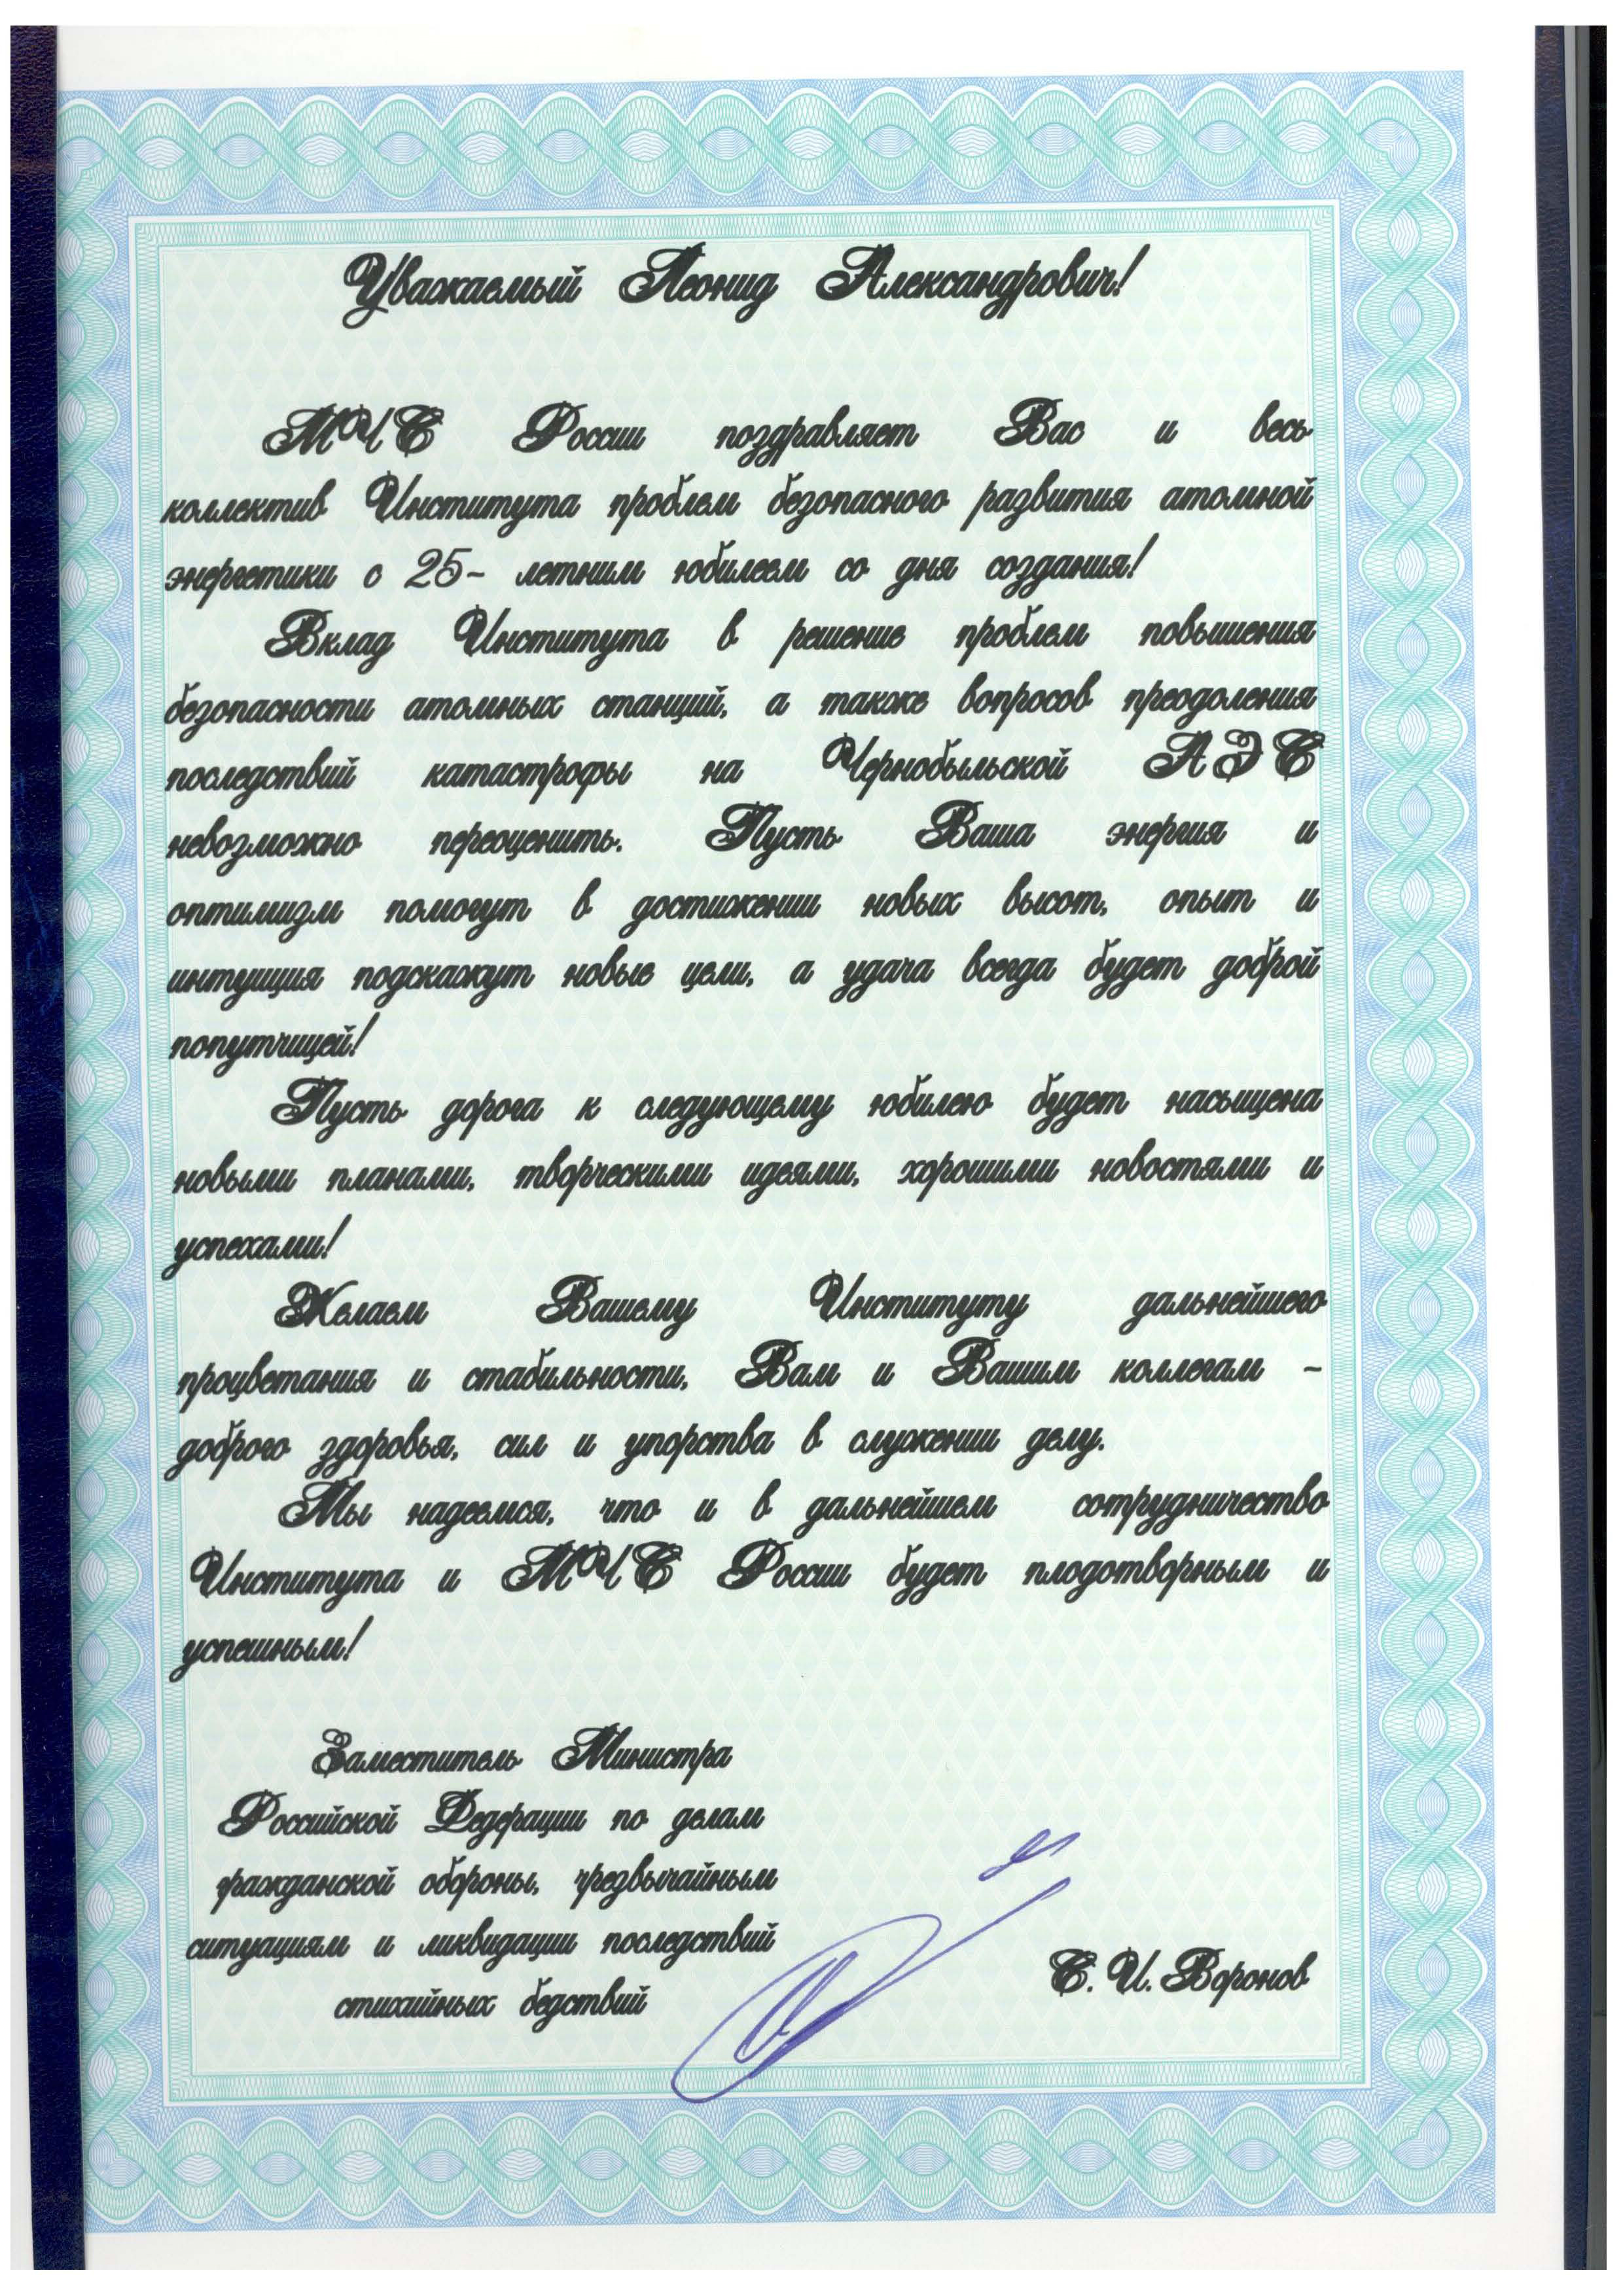 Уважаемый Леонид Александрович!
МЧС России поздравляет Вас и весь
коллектив Института проблем безопасного развития атомной
энергетики с 25- летним юбилеем со дня создания!
Вклад Института в решение проблем повышения
безопасности атомных станций, а также вопросов преодоления
последствий катастрофы на Чернобыльской АЭС
невозможно переоценить. Пусть Ваша энергия и
оптимизм помогут в достижении новых высот, опыт и
интуиция подскажут новые цели, а удача всегда будет доброй
попутчицей!
Пусть дорога к следующему юбилею будет насыщена
новыми планами, творческими идеями, хорошими новостями и
успехами!
Желаем Вашему Институту дальнейшего
процветания и стабильности, Вам и Вашим коллегам -
доброго здоровья, сил и упорства в служении делу.
Мы надеемся, что и в дальнейшем сотрудничество
Института и МЧС России будет плодотворным и
успешным!
Заместитель Министра
Российской Федерации по делам
гражданской обороны, чрезвычайным
ситуациям и ликвидации последствий
стихийных бедствий
С. И. Воронов